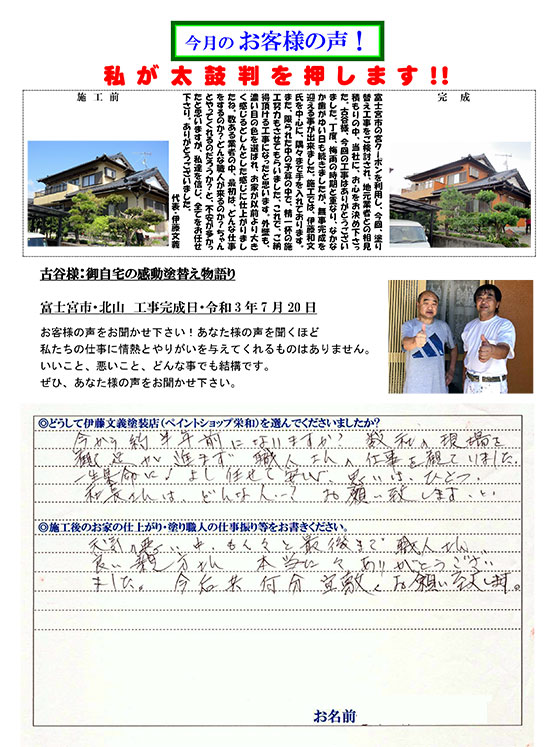 今月の お客様の声！
私が太鼓判を押します!!
施工前
完成
富士宮市の家クーポンを利用し、今回、塗り
替え工事をご検討され、地元業者との相見
積もりの中、当社に、お心をお決め下さっ
た、古谷様、今回の工事はありがとうござい
ました。丁度、梅雨の時期と重なり、なかな
か曲がゆい日も続きましたが、無事完成を
迎える事が出来ました。施工では、伊藤和文
氏を中心に、隅々まで手を入れております。
また、限られた中の予算の中で、精一杯の施
工努力もさせてもらいました。これで、ご納
得頂ける工事になったと思います。外壁も、
濃い目の色を選ばれ、お家が以前より大き
く感じるどしんとした感じに仕上がりまし
たな。数ある業者の中、最初は、どんな仕事
をするのか？どんな職人が来るのか？ちゃん
とやってくれるのだろうか？と、不安が多かっ
たと思いますが、私達を信じ、全てをお任せ
下さり、ありがとうございました。
代表・伊藤文義
古谷様：御自宅の感動塗替え物語り
富士宮市・北山　工事完成日・令和３年７月２０日
お客様の声をお聞かせ下さい！あなた様の声を聞くほど
私たちの仕事に情熱とやりがいを与えてくれるものはありません。
いいこと、悪いこと、どんな事でも結構です。
ぜひ、あなた様の声をお聞かせ下さい。
◎どうして伊藤文義塗装店（ペイントショップ栄和）を選んでくださいましたか？
今から約半年前になりますか？ 数社の現場を
観て 足が進まず 職人さんの仕事を観ていました。
一生集命に♪ よし 任せて安心、思いは、ひとつ.
社長さんは、どんな人…? お願い致します、と
◎施工後のお家の仕上がり・塗り職人の仕事振り等をお書きください。
天気の悪い中、もくもくと最後まで 職人さん…
良い親方さん 本当に々ありがとうござい
ました。今后共何分宜敷くお願い致します。
お名前